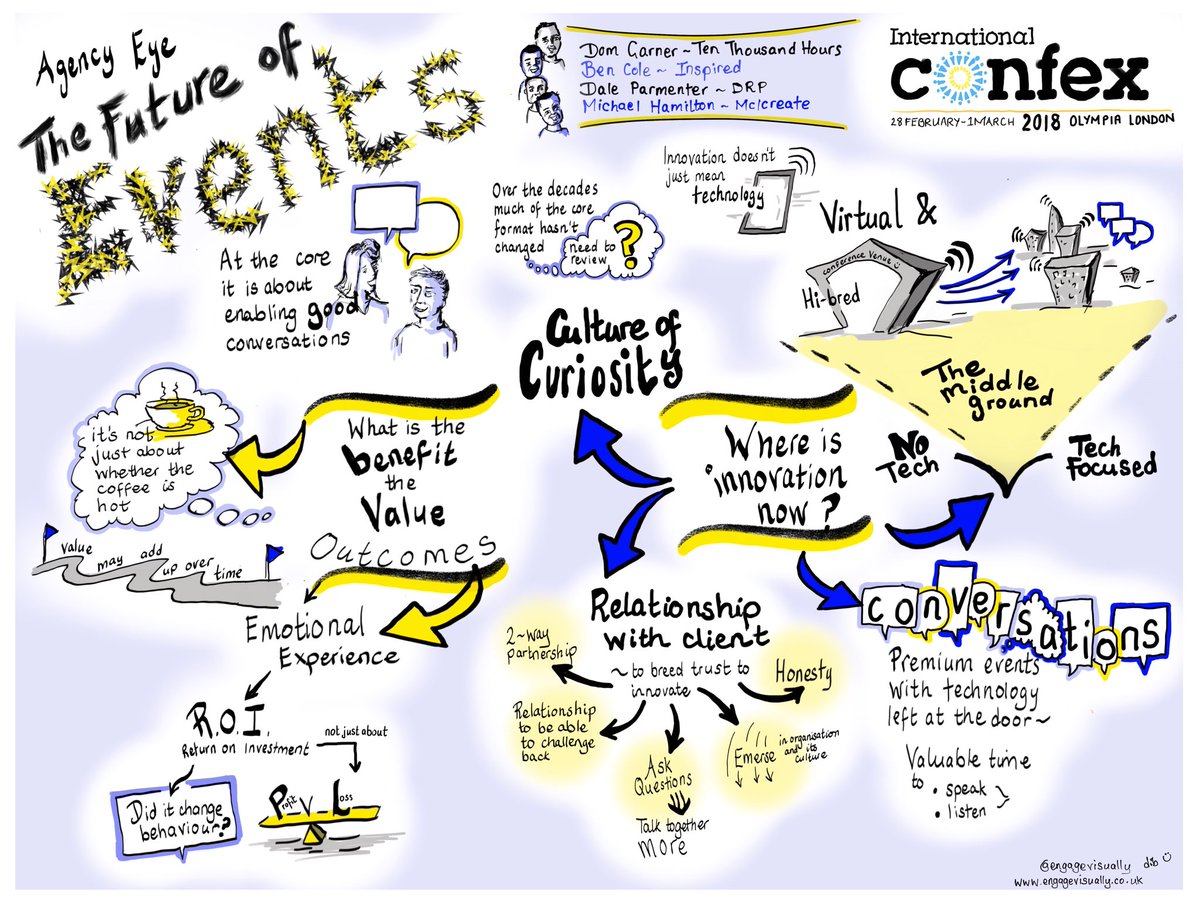 Agency Eye
The Future of
Events
Dom Garner ~ Ten Thousand Hours
Ben Cole ~ Inspired
Dale Parmenter ~ DRP
Michael Hamilton ~ McIcreate
International
confex
28 FEBRUARY - 1 MARCH 2018 OLYMPIA LONDON
At the core
it is about
enabling good
conversations
Over the decades
much of the core
format hasn't
changed
need to
review
?
Innovation doesn't
just mean
technology
Virtual &
Hi-bred
conference venue
The
middle
ground
No
Tech
Tech
Focused
Culture of
Curiosity
Where is
innovation
now?
What is the
benefit
the
Value
Outcomes
it's not
just about
whether the
coffee is
hot
value may add up over time
Emotional
Experience
R.O.I.
Return on Investment
not just about
Did it change
behaviour?
Profit V Loss
Relationship
with client
~ to breed trust to
innovate
2~way
partnership
Relationship
to be able
to challenge
back
Ask
Questions
Talk together
More
Emerse in organisation
and its
culture
Honesty
conversations
Premium events
with technology
left at the door~
Valuable time
to • speak
• listen
@engagevisually dib
www.engagevisually.co.uk